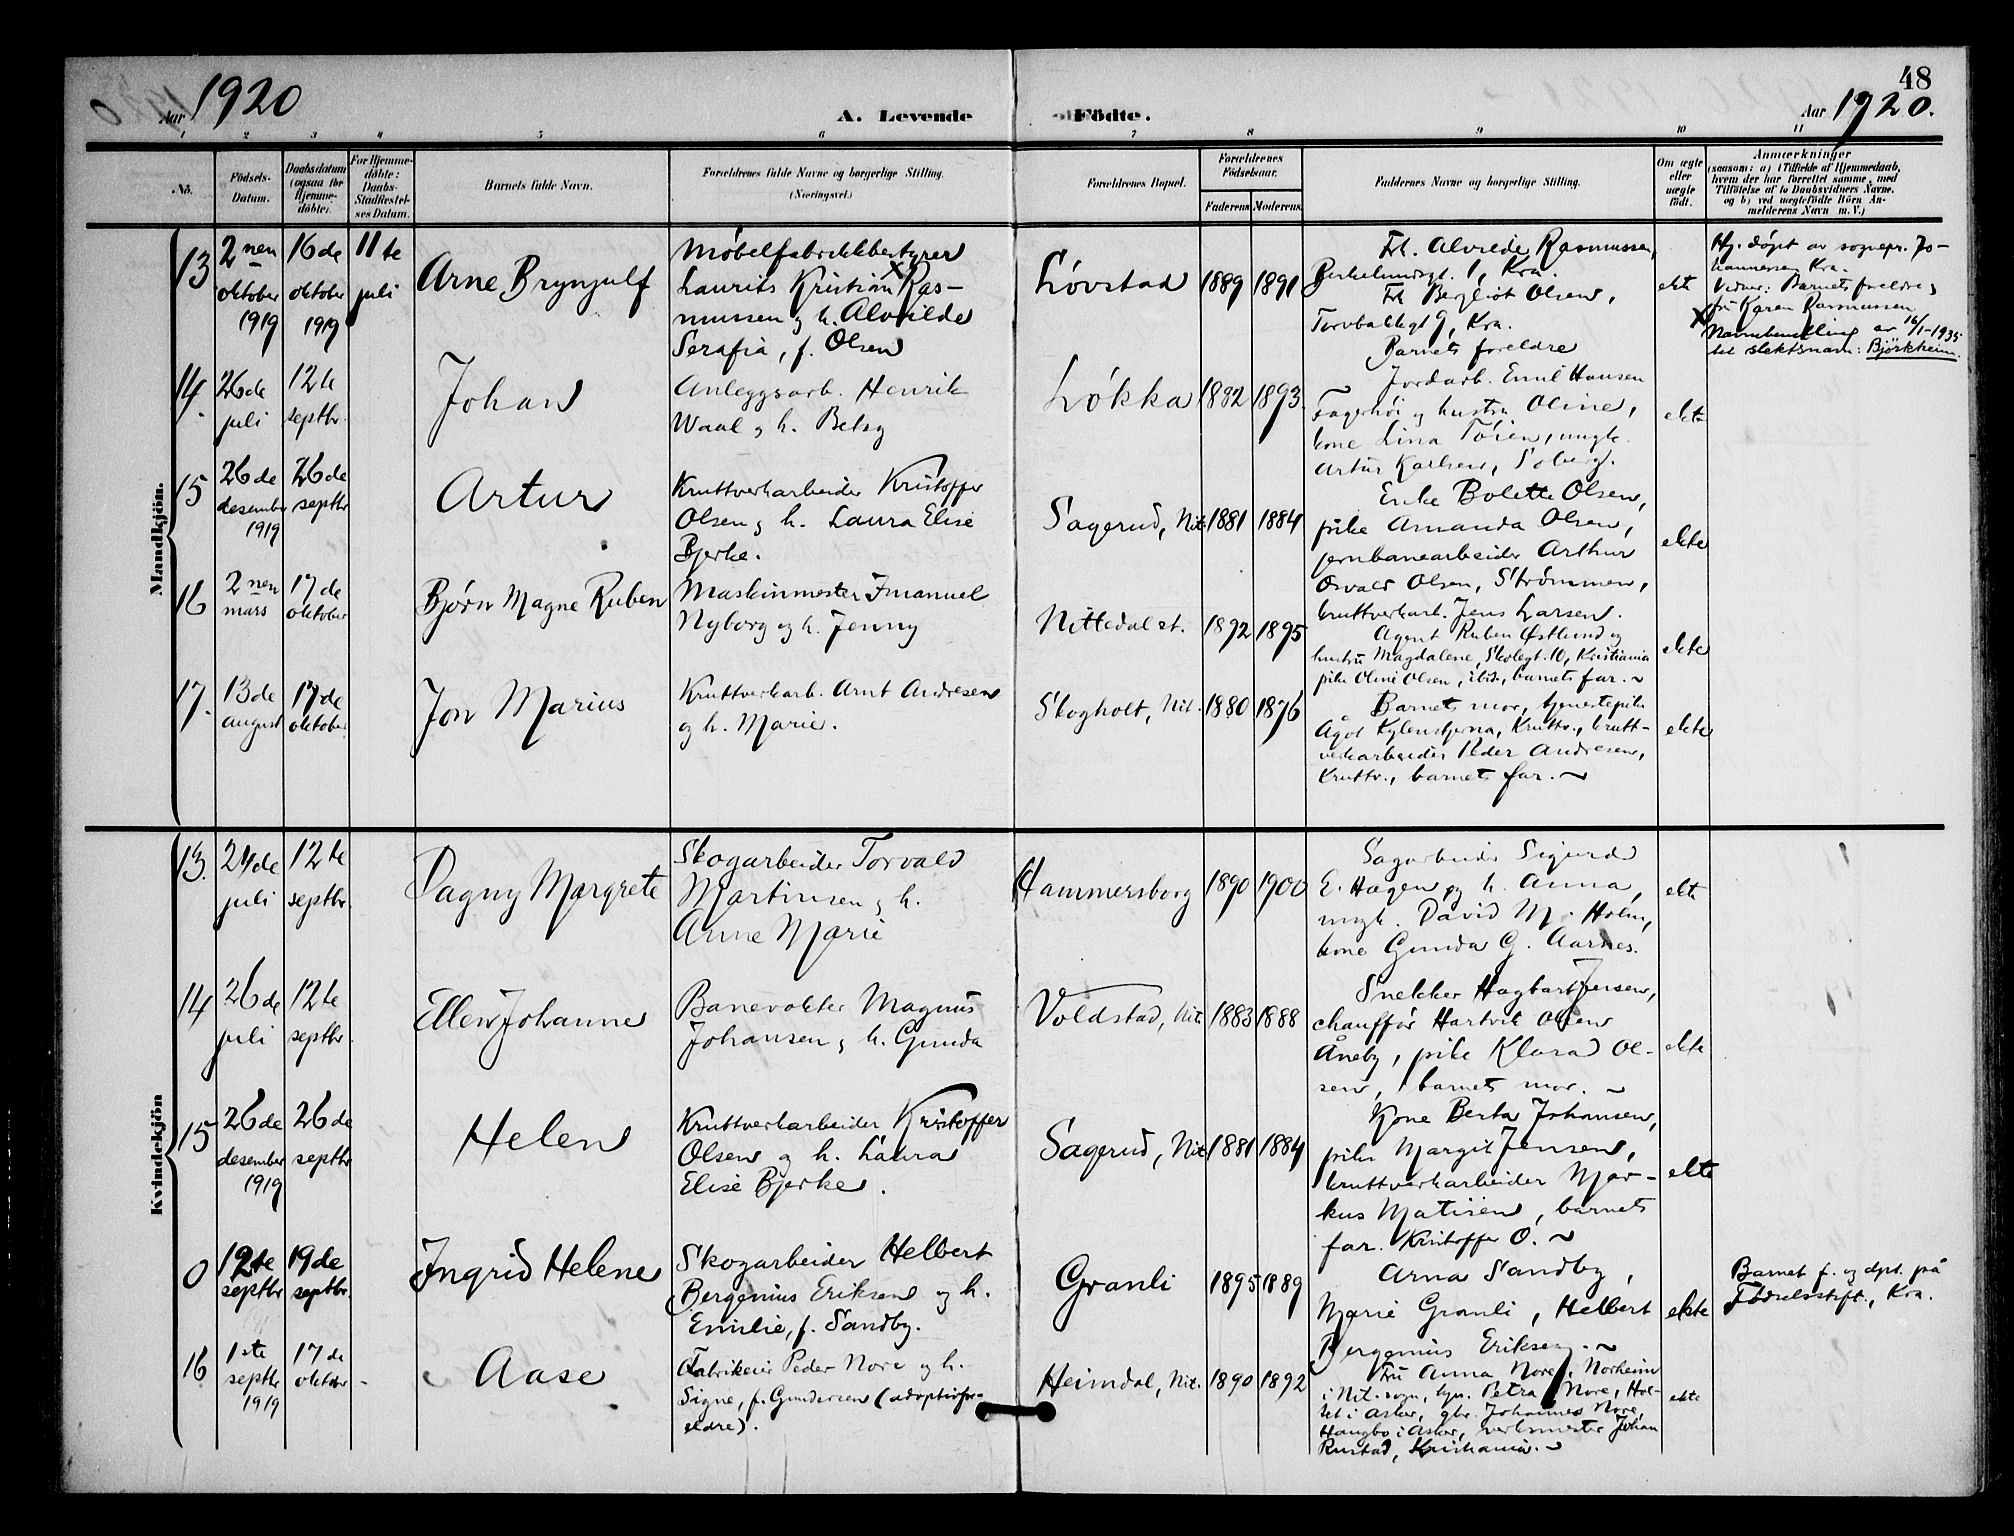 48
Aar 1920
A. Levende
Födte.
Aar 1920.
1 2 3 4 5 6 7 8 9 10 11
No.
Födsels-
Datum.
Daabsdatum
(ogsaa for
Hjemme-
döbte).
For Hjemme-
döbte:
Daabs-
Stadfæstel-
ses Datum.
Barnets fulde Navn.
Forældrenes fulde Navne og borgerlige Stilling.
(Næringsvei.)
Forældrenes Bopæl.
Forældrenes
Födselsaar.
Faderens
Moderens
Faddernes Navne og borgerlige Stilling.
Om ægte
eller
uægte
födt.
Anmærkninger
(saasom: a) i Tilfælde af Hjemmedaab,
hvem der har forrettet samme, med
Tilföielse af to Daabsvidners Navne,
og b) ved uægtefödte Börn An-
melderens Navn m. V.)
Mandkjön.
13
2nen
oktober
1919
16de
oktober
1919
11te
juli
Arne Brynjulf
Møbelfabrikkbestyrer
Laurits Kristian x Ras-
mussen og h. Alvilde
Serafia, f. Olsen
Løvstad
1889
1891
Frk. Alvilde Rasmussen,
1, Kra.
Frk Bergliot Olsen,
9, Kra.
Barnets foreldre
ekte
Hj. døpt av sognepr. Jo-
hannessen, Kra.
Vidner: Barnets foreldre og
fru Karen Rasmussen
x Navnbevilling av 16/1-1935
til slektsnavn: Björkheim.
14.
26de
juli
12te
septbr.
Johan
Anleggsarb. Henrik
Waal og h. Betsy
Løkka
1882
1893
Jordarb. Emil Hansen
Fagerhøi og hustru Oline,
kone Lina Tøien, ungk.
Artur Karlsen, Søberg.
ekte
15
26de
desember
1919
26de
septbr
Artur
Kruttverkarbeider Kristoffer
Olsen og h. Laura Elise
Bjerke.
Sagerud, Nit.
1881
1884
Enke Bolette Olsen,
pike Amanda Olsen,
jernbanearbeider Arthur
Osvald Olsen, Strømmen,
kruttverkarb. Jens Larsen.
ekte
16
2nen
mars
17de
oktober
Bjørn Magne Ruben
Maskinmester Imanuel
Nyborg og h. Jenny
Nittedal st.
1892
1895
Agent Ruben Østlund og
hustru Magdalene, Skolegt. 10, Kristiania
pike Olini Olsen, ibid, barnets far. ~
ekte
17.
13de
august
17de
oktober
Jon Marius
Kruttverkarb. Arnt Andresen
og h. Marie.
Skogholt, Nit.
1880
1876
Barnets mor, tjenestepike
Ågot Kylenstjerna, Kruttv., krutt-
verkarbeider Peder Andresen,
Kruttv., barnets far. ~
ekte
Kvindekjön
13.
27de
juli
12te
septbr.
Dagny Margrete
Skogarbeider Torvald
Martinsen og h.
Anne Marie
Hammersborg
1890
1900
Sagarbeider Sigurd
E. Hagen og h. Anna,
ungk. David M. Holm,
kone Gunda G. Aarnes.
ekte
14
26de
juli
12te
septbr.
Ellen Johanne
Banevokter Magnus
Johansen og h. Gunda
Voldstad, Nit.
1883
1888
Snekker Hagbart Jensen,
chauffør Hartvik Olsen
Åneby, pike Klara Ol-
sen, barnets mor. ~
ekte
15
26de
desember
1919
26de
septbr
Helen
Kruttverkarbeider Kristoffer
Olsen og h. Laura
Elise Bjerke.
Sagerud, Nit.
1881
1884
Kone Berta Johansen,
pike Margit Jensen,
kruttverkarbeider Mar-
kus Matisen, barnets
far. Kristoffer O. ~
ekte
0
12te
septbr
19de
septbr.
Ingrid Helene
Skogarbeider Helbert
Bergenius Eriksen og h.
Emilie, f. Sandby.
Granli
1895
1889
Arna Sandby,
Marie Granli, Helbert
Bergenius Eriksen. ~
ekte
Barnet f. og dpt. på
Fødselsstift., Kra.
16
1ste
septbr
1919
17de
oktober
-
Aase
Fabrikeier Peder Nore og h.
Signe, f. Gundersen (adoptivfor-
eldre).
Heimdal, Nit.
1890
1892
Fru Anna Nore, Norheim
i Nit. sogn, Petra Nore, Hol-
set i Asker, gbr. Johannes Nore,
Haugbo i Asker, verksmester Johan
Rustad, Kristiania. ~
ekte